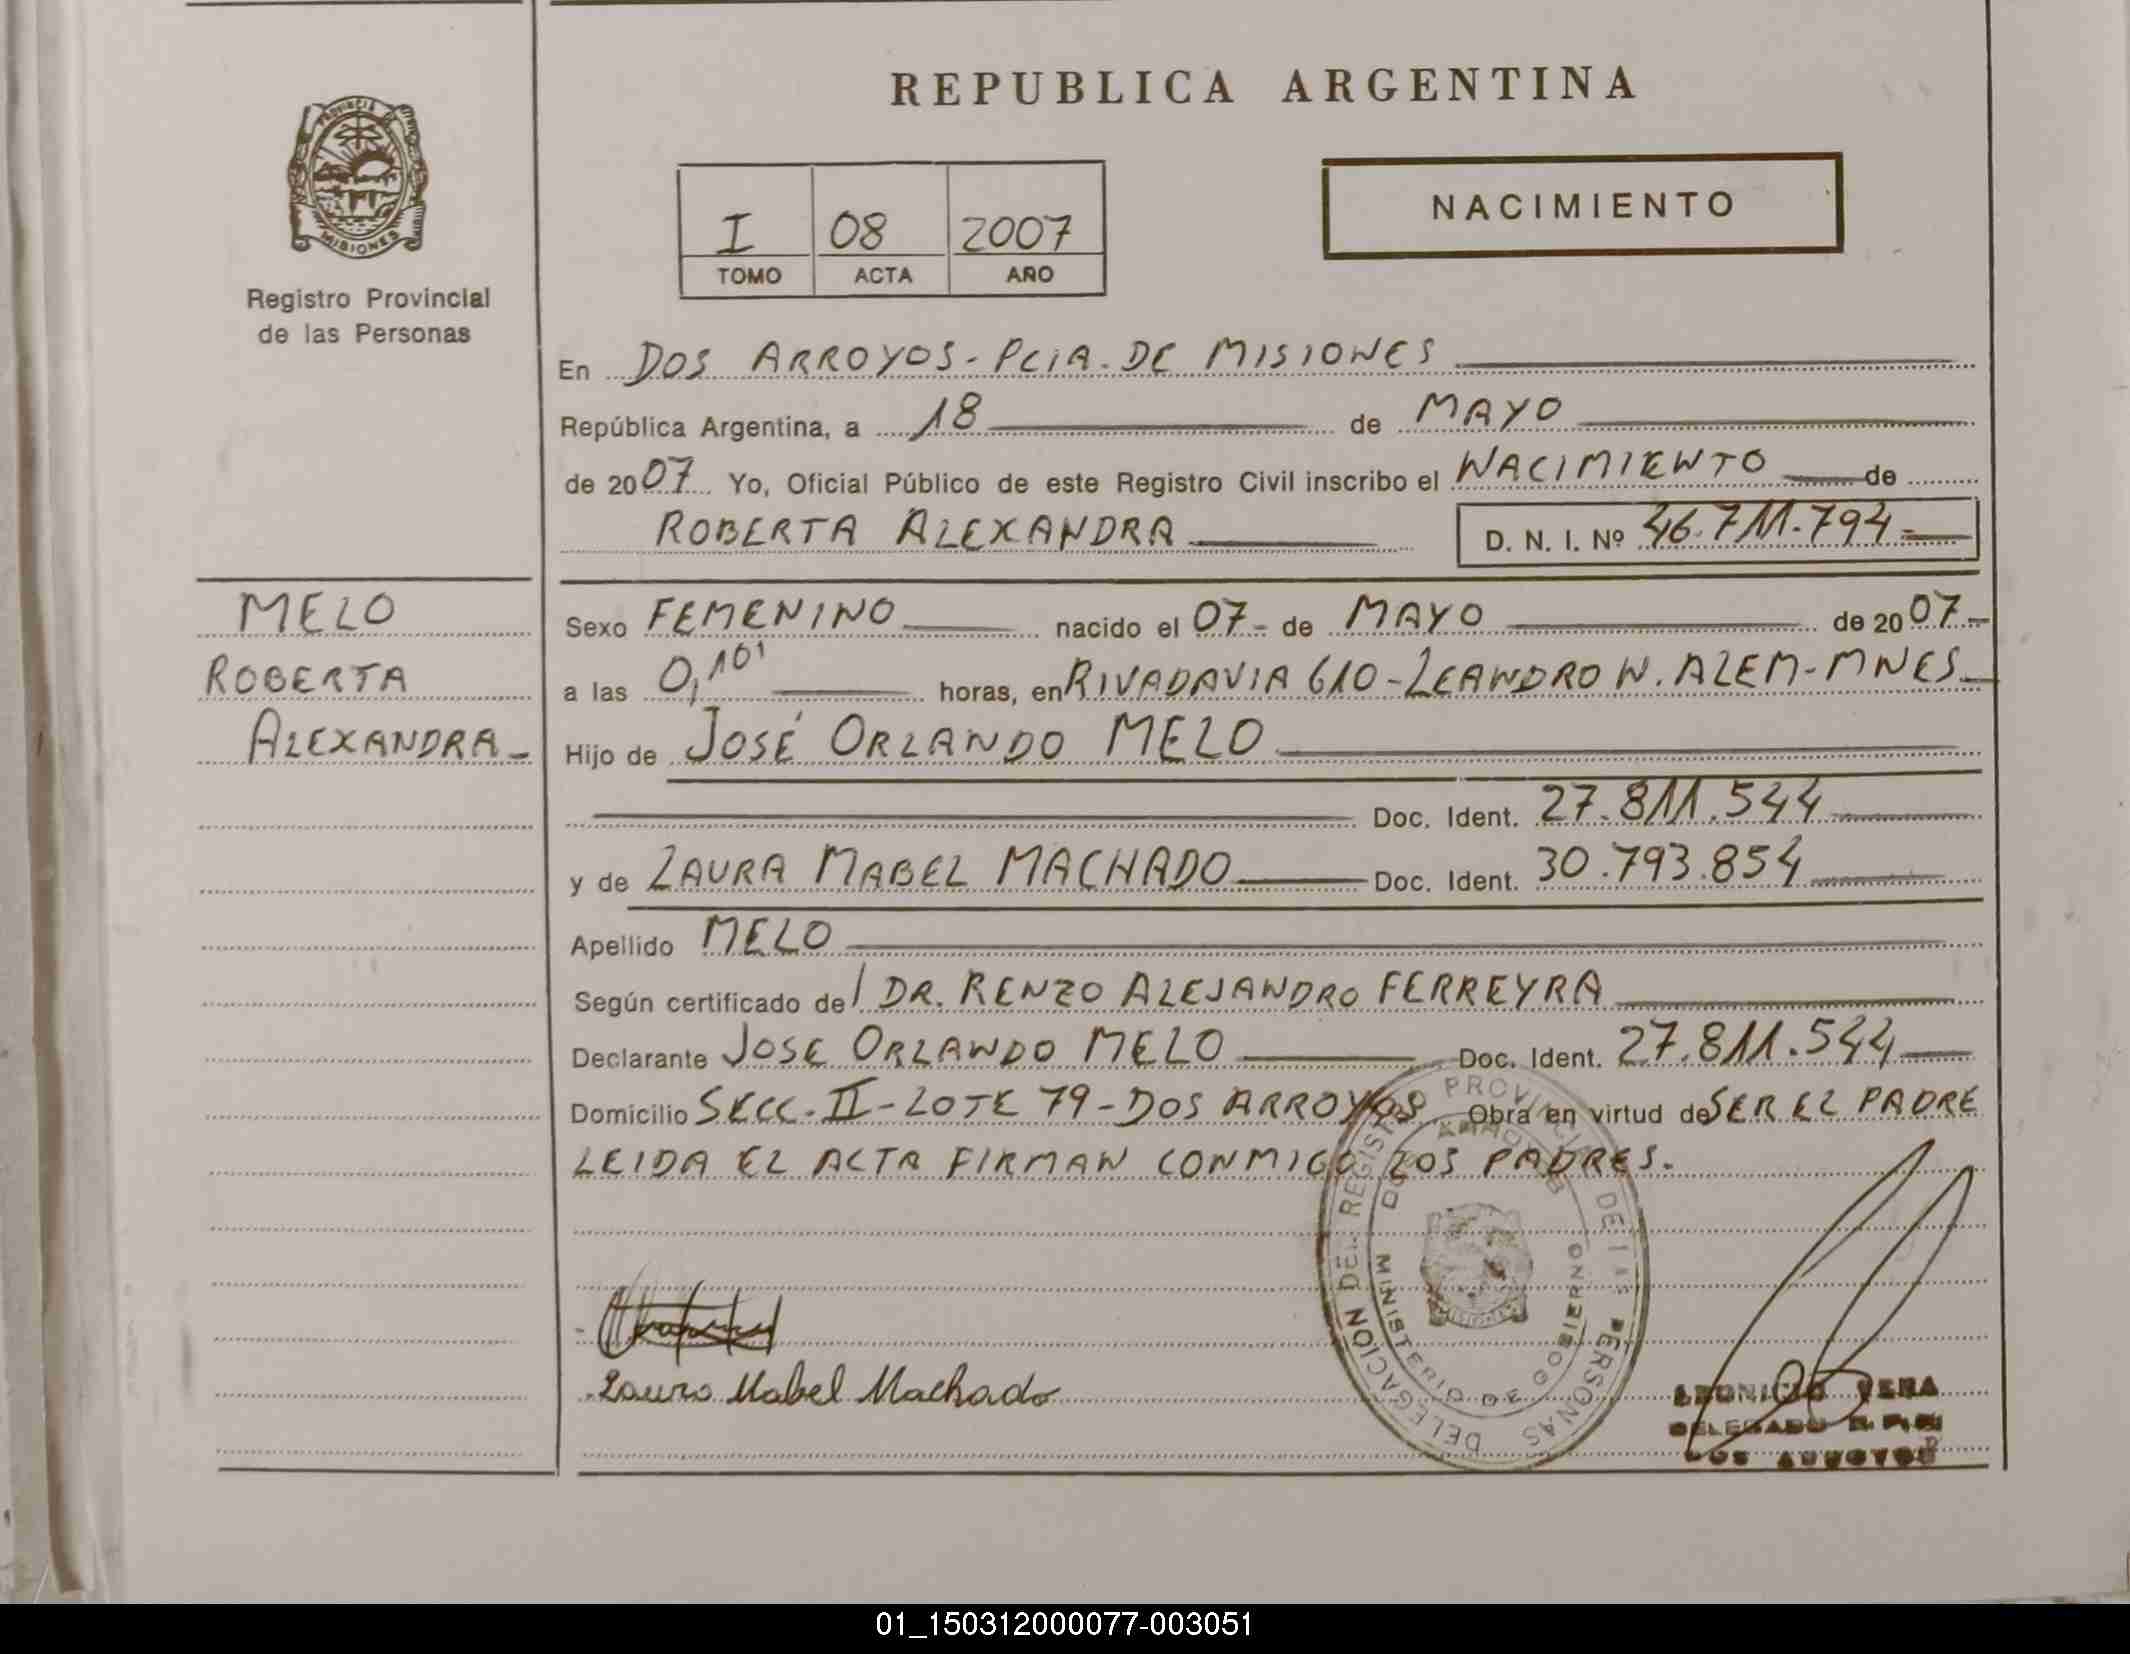 REPUBLICA ARGENTINA
PROVINCIA DE
MISIONES
Registro Provincial
de las Personas
I 08 2007
TOMO ACTA AÑO
NACIMIENTO
En DOS ARROYOS - PCIA. DE MISIONES
República Argentina, a 18 de MAYO
de 2007 Yo, Oficial Público de este Registro Civil inscribo el NACIMIENTO de
ROBERTA ALEXANDRA D. N. I. Nº 46.711.794
MELO
ROBERTA
ALEXANDRA
Sexo FEMENINO nacido el 07 - de MAYO de 2007 -
a las 0,10' horas, en RIVADAVIA 610 - LEANDRO N. ALEM - MNES
Hijo de JOSÉ ORLANDO MELO
Doc. Ident. 27.811.544
y de LAURA MABEL MACHADO Doc. Ident. 30.793.854
Apellido MELO
Según certificado de DR. RENZO ALEJANDRO FERREYRA
Declarante JOSE ORLANDO MELO Doc. Ident. 27.811.544
Domicilio SECC. II - LOTE 79 - DOS ARROYOS Obra en virtud de SER EL PADRE
LEIDA EL ACTA FIRMAN CONMIGO LOS PADRES.
DELEGACIÓN DEL REGISTRO PROVINCIAL DE LAS PERSONAS
DOS ARROYOS
MINISTERIO DE GOBIERNO
Laura Mabel Machado
VERA
DELEGADO
DOS ARROYOS
01_150312000077-003051